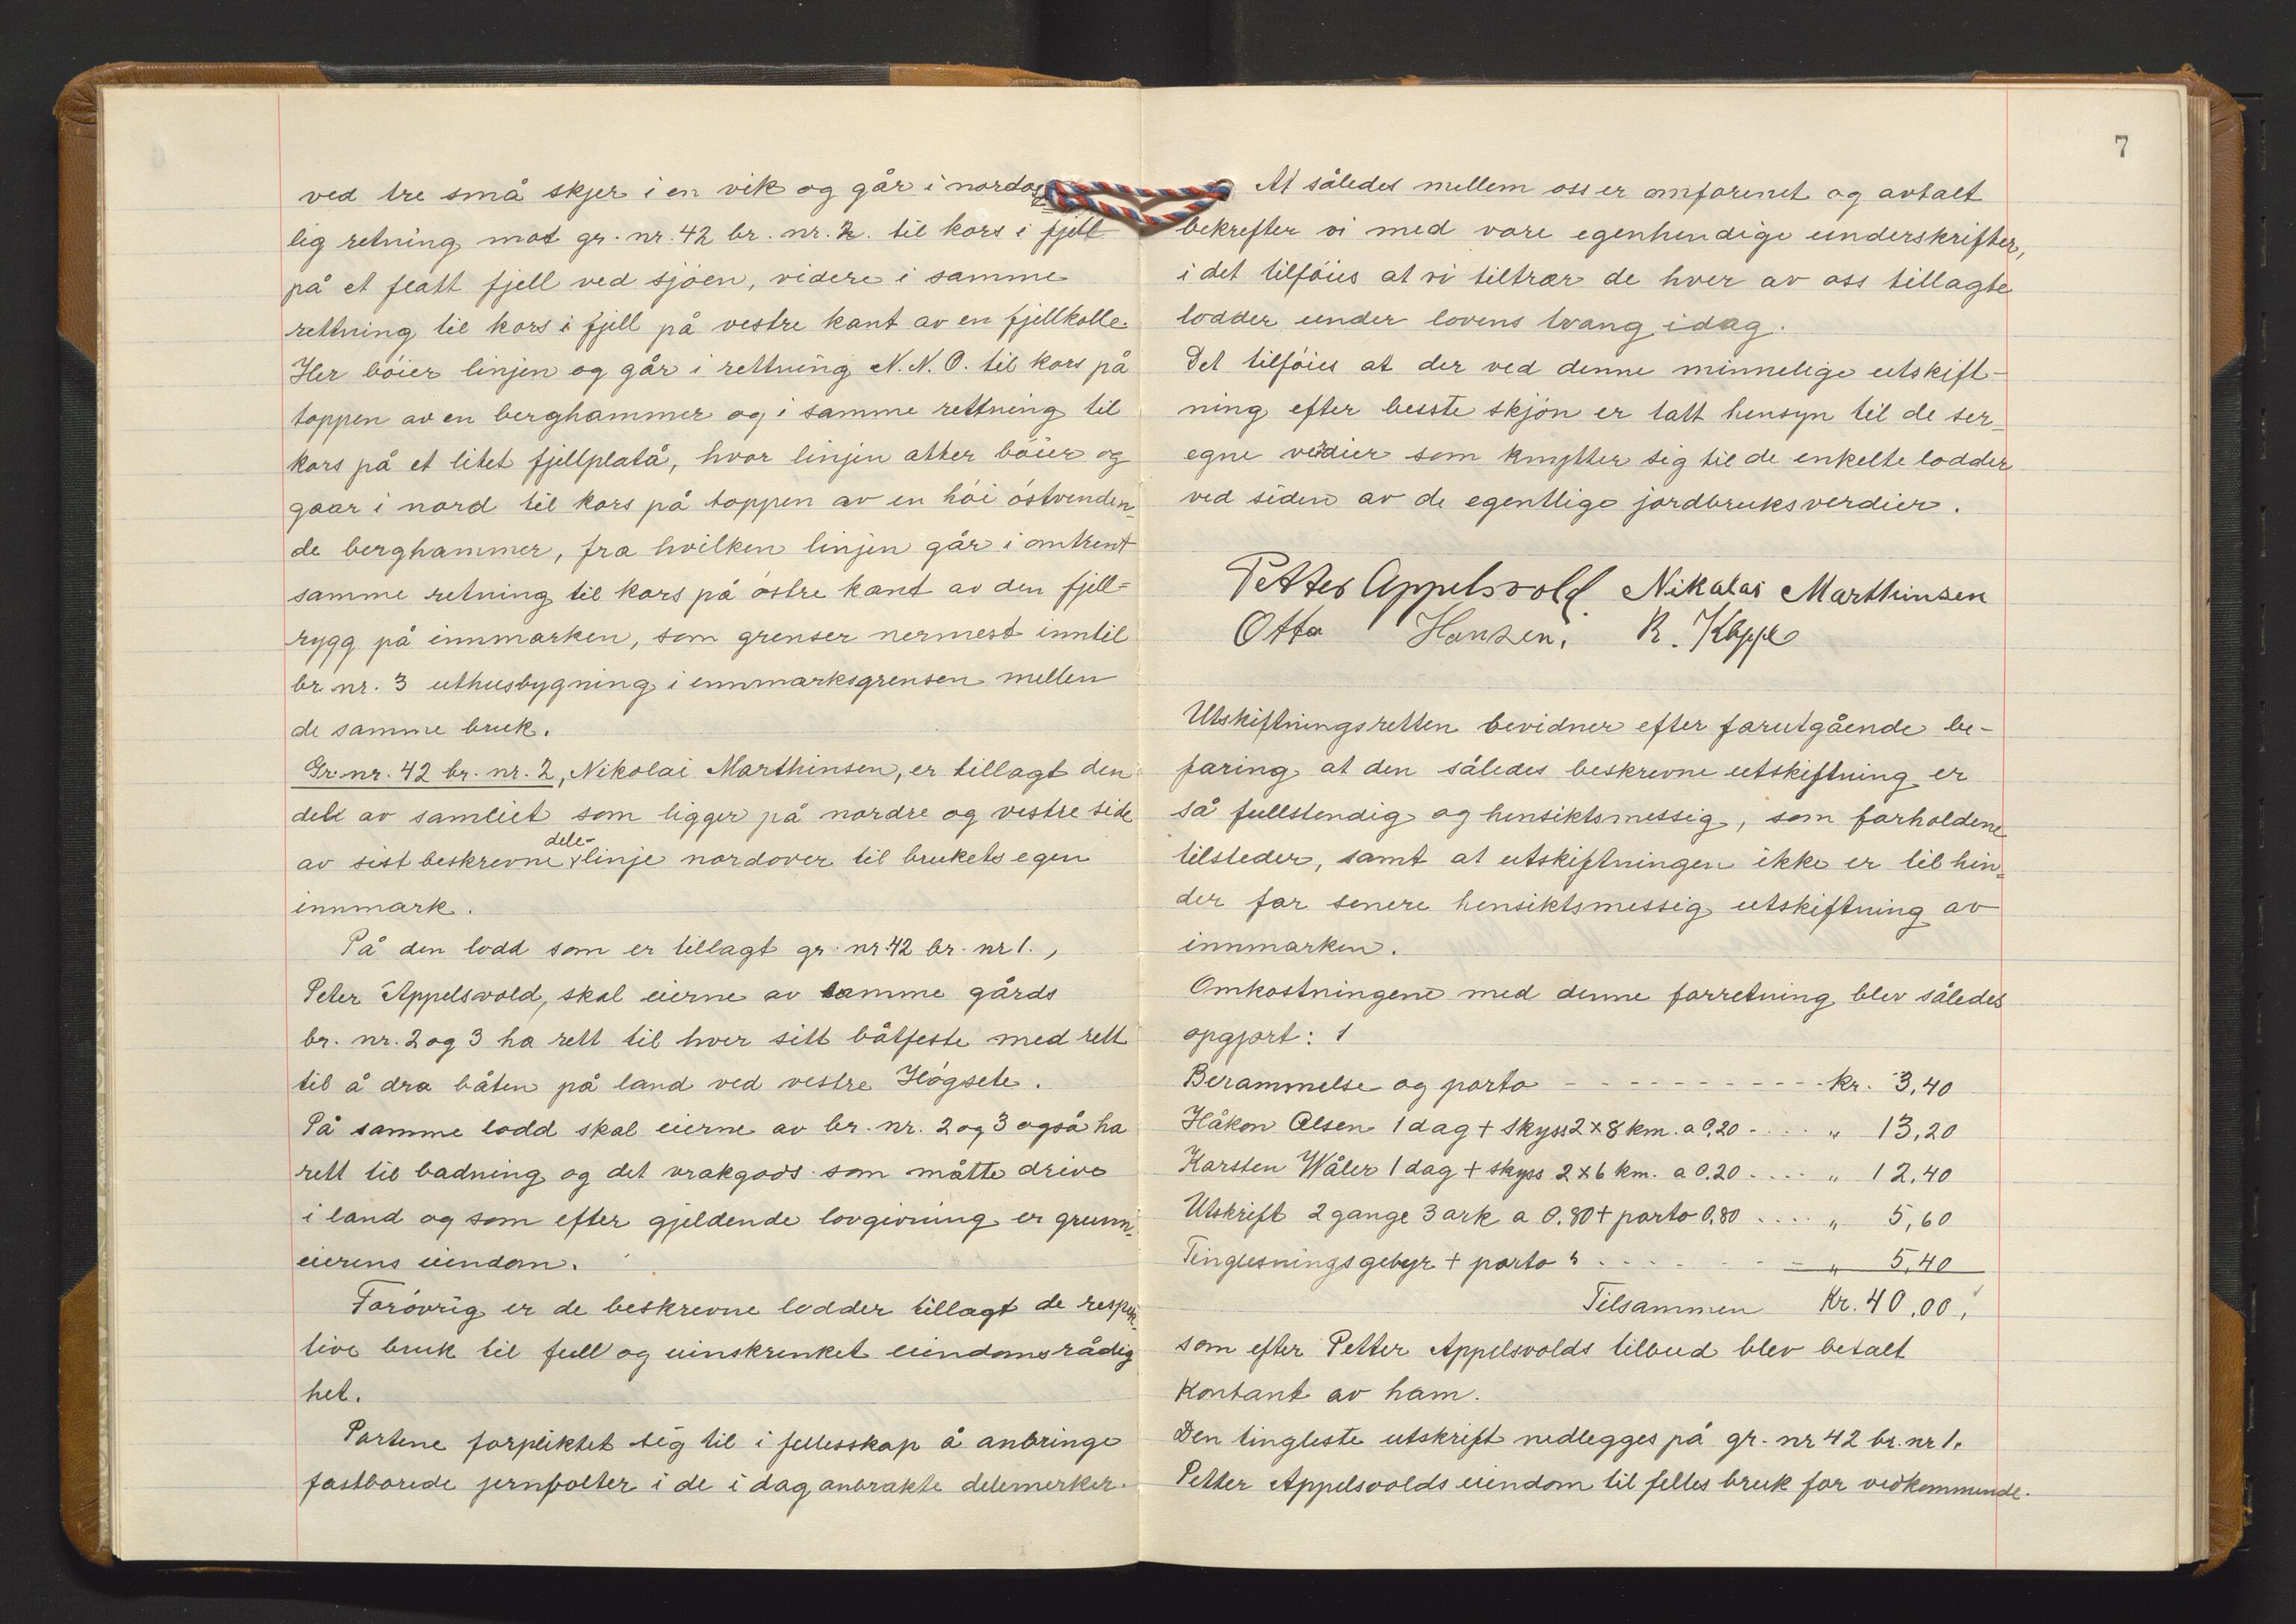 ved tre små skjer i en vik og går i nordøst
lig retning mot gr. nr. 42 br. nr. 2. til kors i fjell
på et flatt fjell ved sjöen, videre i samme
rettning til kors i fjell på vestre kant av en fjellkolle.
Her böier linjen og går i rettning N. N. O. til kors på
toppen av en berghammer og i samme rettning til
kors på et litet fjellplatå, hvor linjen atter böier og
gaar i nord til kors på toppen av en höi östvenden-
de berghammer, fra hvilken linjen går i omtrent
samme retning til kors på östre kant av den fjell-
rygg på innmarken, som grenser nermest inntil
br. nr. 3 uthusbygning i innmarksgrensen mellem
de samme bruk.
Gr. nr. 42 br. nr. 2, Nikolai Marthinsen, er tillagt den
del av samliet som ligger på nordre og vestre side
dele-
av sist beskrevne linje nordover til brukets egen
innmark.
På den lodd som er tillagt gr. nr. 42 br. nr 1.,
Peter Appelsvold, skal eierne av samme gårds
br. nr. 2 og 3 ha rett til hver sitt båtfeste med rett
til å dra båten på land ved vestre Högsete.
På samme lodd skal eierne av br. nr. 2 og 3 også ha
rett til badning og det vrakgods som måtte drive
i land og som efter gjeldende lovgivning er grunn-
eierens eiendom.
Forövrig er de beskrevne lodder tillagt de respek-
tive bruk til full og uinskrenket eiendomsrådig
het.
Partene forpliktet sig til i fellesskap å anbringe
fastborede jernbolter i de i dag anbrakte delemerker.
7
At således mellem oss er omforenet og avtalt
bekrefter vi med vore egenhendige underskrifter,
i det tilföies at vi tiltrær de hver av oss tillagte
lodder under lovens tvang idag.
Det tilföies at der ved denne minnelige utskift-
ning efter besste skjön er tatt hensyn til de ser-
egne verdier som knytter sig til de enkelte lodder
ved siden av de egentlige jordbruksverdier.
Petter Appelsvold Nikolai Marthinsen
Otto Hansen. R. Kleppe
Utskiftningsretten bevidner efter forutgående be-
faring at den således beskrevne utskiftning er
så fullstendig og hensiktsmessig, som forholdene
tilsteder, samt at utskiftningen ikke er til hin-
der for senere hensiktsmessig utskiftning av
innmarken.
Omkostningene med denne forretning blev således
opgjort:
Berammelse og porto - - - - - - - - - - - kr. 3,40
Håkon Olsen 1 dag + skyss 2 x 8 km. a 0,20 - . . . . „ 13,20
Karsten Wåler 1 dag + skyss 2 x 6 km. a 0.20 - . . . „ 12,40
Utskrift 2 gange 3 ark a 0.80 + porto 0,80 . . . . „ 5,60
Tinglesningsgebyr + porto . . . . . - - - „ 5,40
Tilsammen Kr. 40,00,
som efter Petter Appelsvolds tilbud blev betalt
kontant av ham.
Den tingleste utskrift nedlegges på gr. nr 42 br. nr 1.
Petter Appelsvolds eiendom til felles bruk for vedkommende.